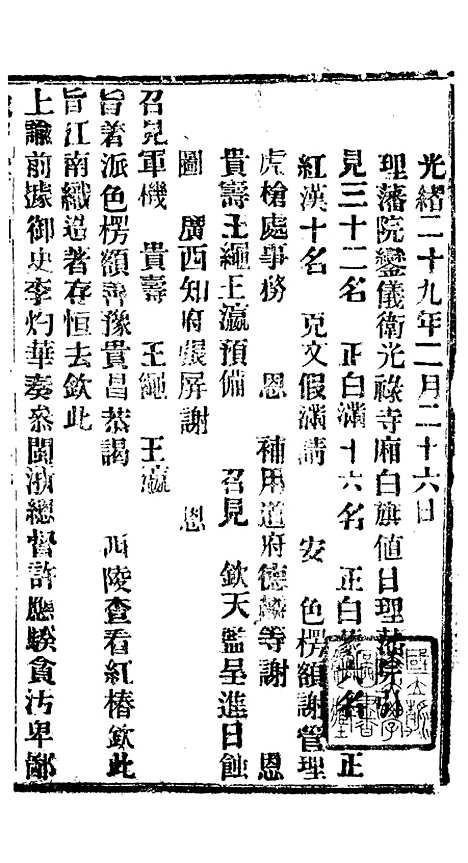 光緒二十九年二月二十六日
理藩院鑾儀衛光祿寺廂白旗值日理藩院
見三十二名　正白滿十六名　正白　名　正
紅漢十名　克文假滿請　安　色楞額謝管理
虎槍處事務　恩　補用道府德麟等謝　恩
貴壽王繩王瀛預備　召見　欽天監呈進日蝕
圖　廣西知府張屏謝　恩
召見軍機　貴壽　王繩　王瀛
旨着派色楞額壽豫貴昌恭謁　西陵查看紅樁欽此
旨江南織造著存恒去欽此
上諭前據御史李灼華奏參閩浙總督許應騤貪汚卑鄙